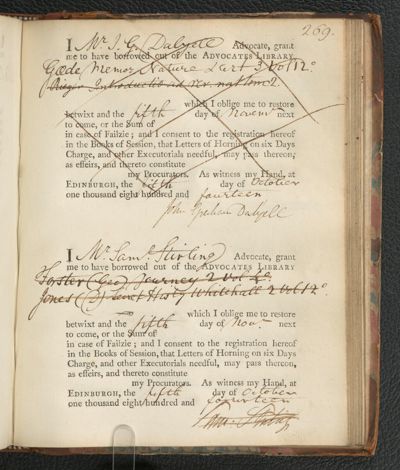 269.
I Mr J. G. Dalyell Advocate, grant
me to have borrowed out of the ADVOCATES LIBRARY
Goede Memor Nature & Art 3 vol 12o.
Introductio ad rer. nat tom 2.
which I oblige me to restore
betwixt and the fifth day of Novemr. next
to come, or the Sum of
in case of Failzie; and I consent to the registration hereof
in the Books of Session, that Letters of Horning on six Days
Charge, and other Executorials needful, may pass thereon;
as effeirs, and thereto constitute
my Procurators. As witness my Hand, at
EDINBURGH, the fifth day of October
one thousand eight hundred and fourteen
John Graham Dalyell
I Mr Saml. Stirling Advocate, grant
me to have borrowed out of the ADVOCATES LIBRARY
Forster (Geo) Journey 2 vol 4o.
Jones (D) Secret Histy Whitehall 2 vol 12o.
which I oblige me to restore
betwixt and the fifth day of Novr. next
to come, or the Sum of
in case of Failzie; and I consent to the registration hereof
in the Books of Session, that Letters of Horning on six Days
Charge, and other Executorials needful, may pass thereon,
as effeirs, and thereto constitute
my Procurators. As witness my Hand, at
EDINBURGH, the fifth day of October
one thousand eight hundred and fourteen
Saml. Stirling